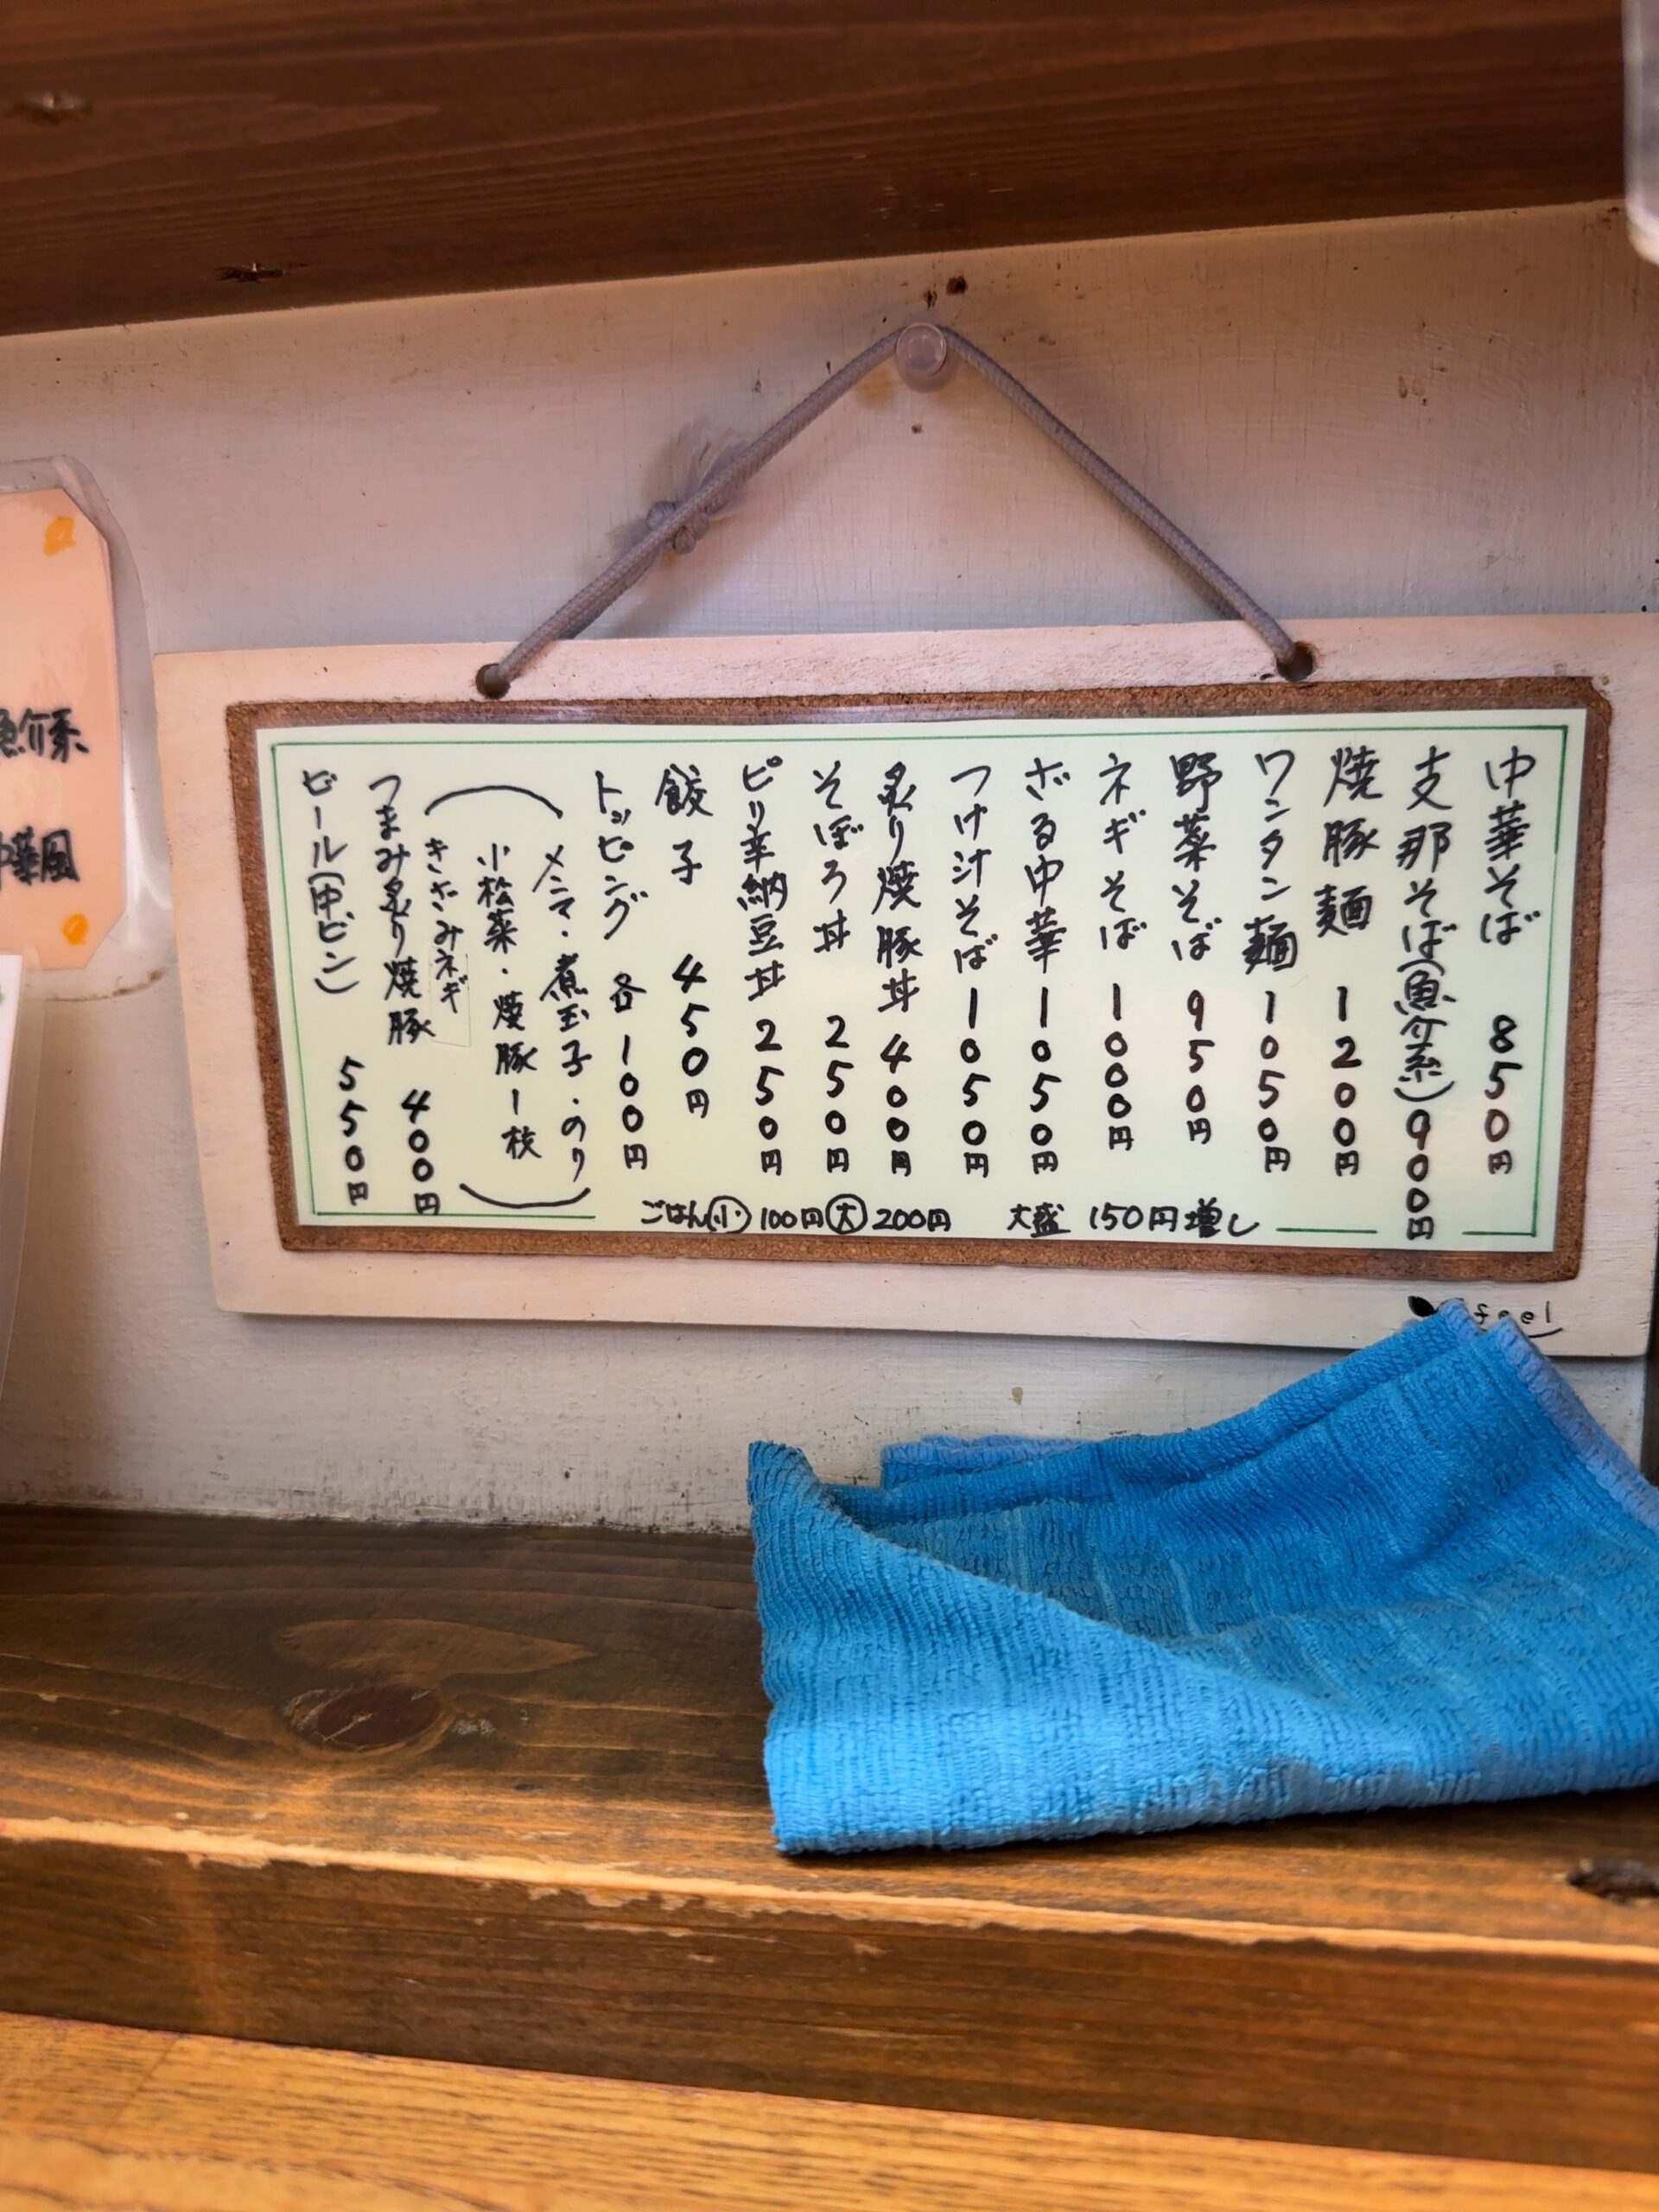 中華そば 850円
支那そば(魚介系)900円
焼豚麺 1200円
ワンタン麺 1050円
野菜そば 950円
ネギそば 1000円
ざる中華 1050円
つけ汁そば 1050円
炙り焼豚丼 400円
そぼろ丼 250円
ピリ辛納豆丼 250円
餃子 450円
トッピング 各100円
(メンマ・煮玉子・のり
小松菜・焼豚1枚
きざみネギ)
つまみ炙り焼豚 400円
ビール(中ビン) 550円
ごはん小100円大200円 大盛 150円増し
feel
魚介系
中華風